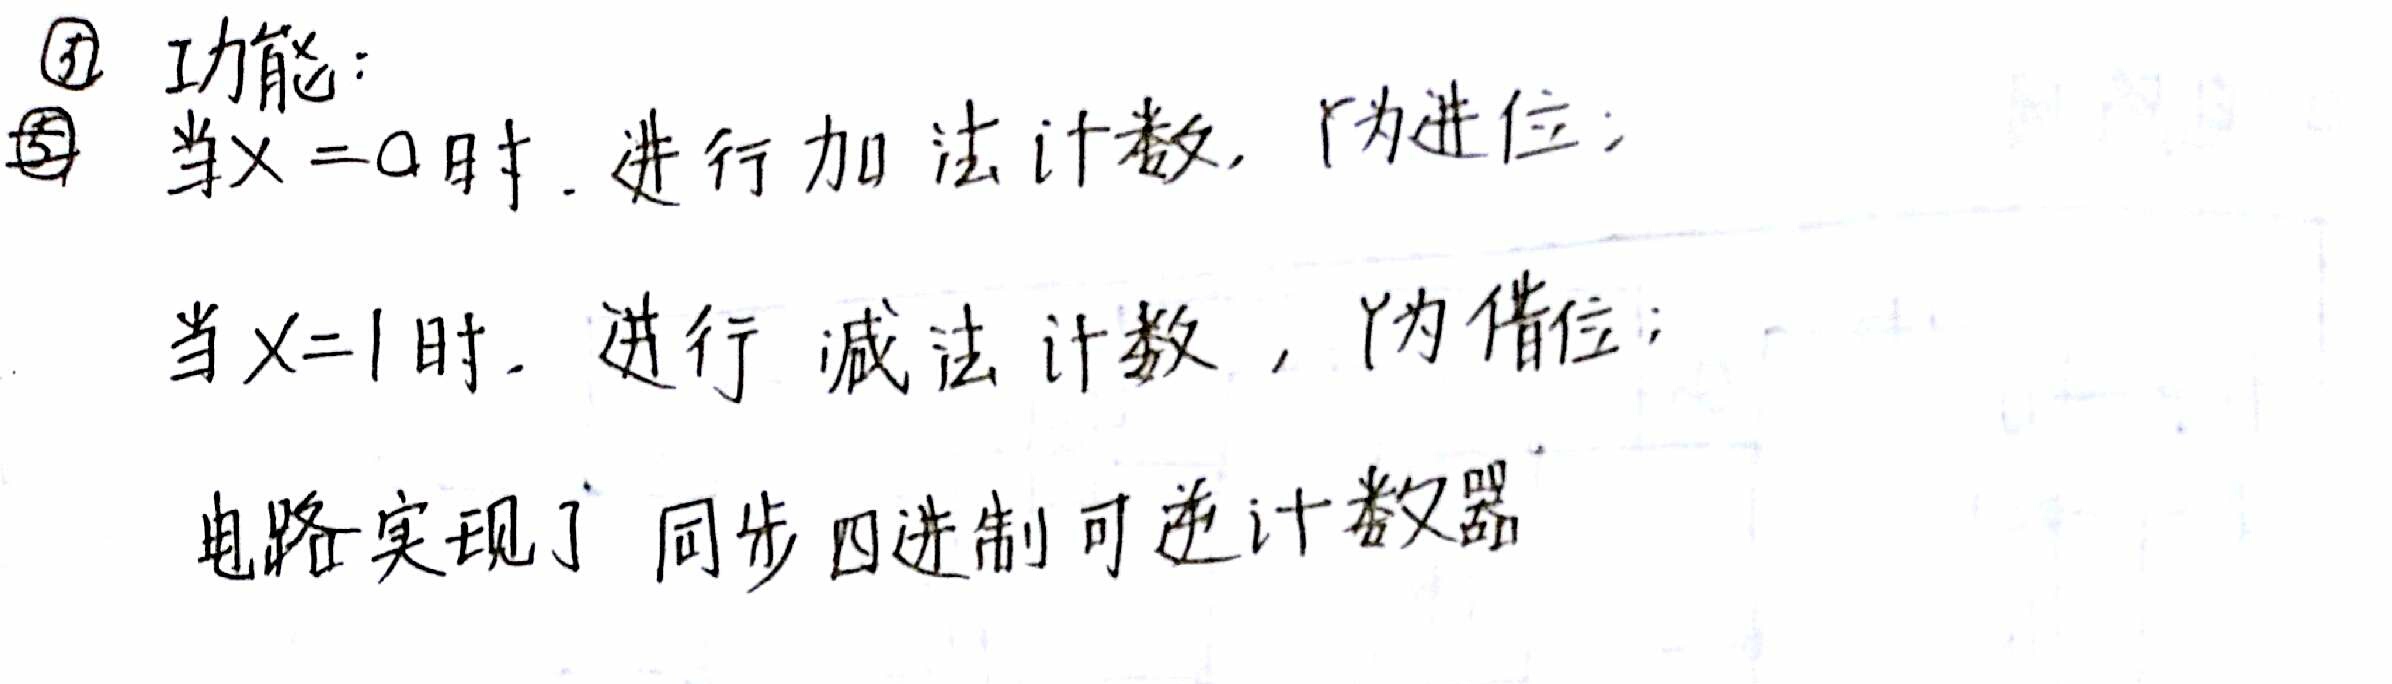 ⑤ 功能:
当X=0时.进行加法计数,Y为进位;
当X=1时.进行减法计数,Y为借位;
电路实现了同步四进制可逆计数器